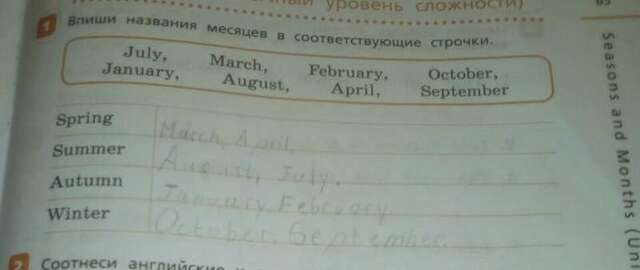 уровень сложности)
1 Впиши названия месяцев в соответствующие строчки.
July, March, February, October,
January, August, April, September
Spring March, April,
Summer August, July.
Autumn January February
Winter October, September.
2 Соотнеси английские
Seasons and Months (Uni